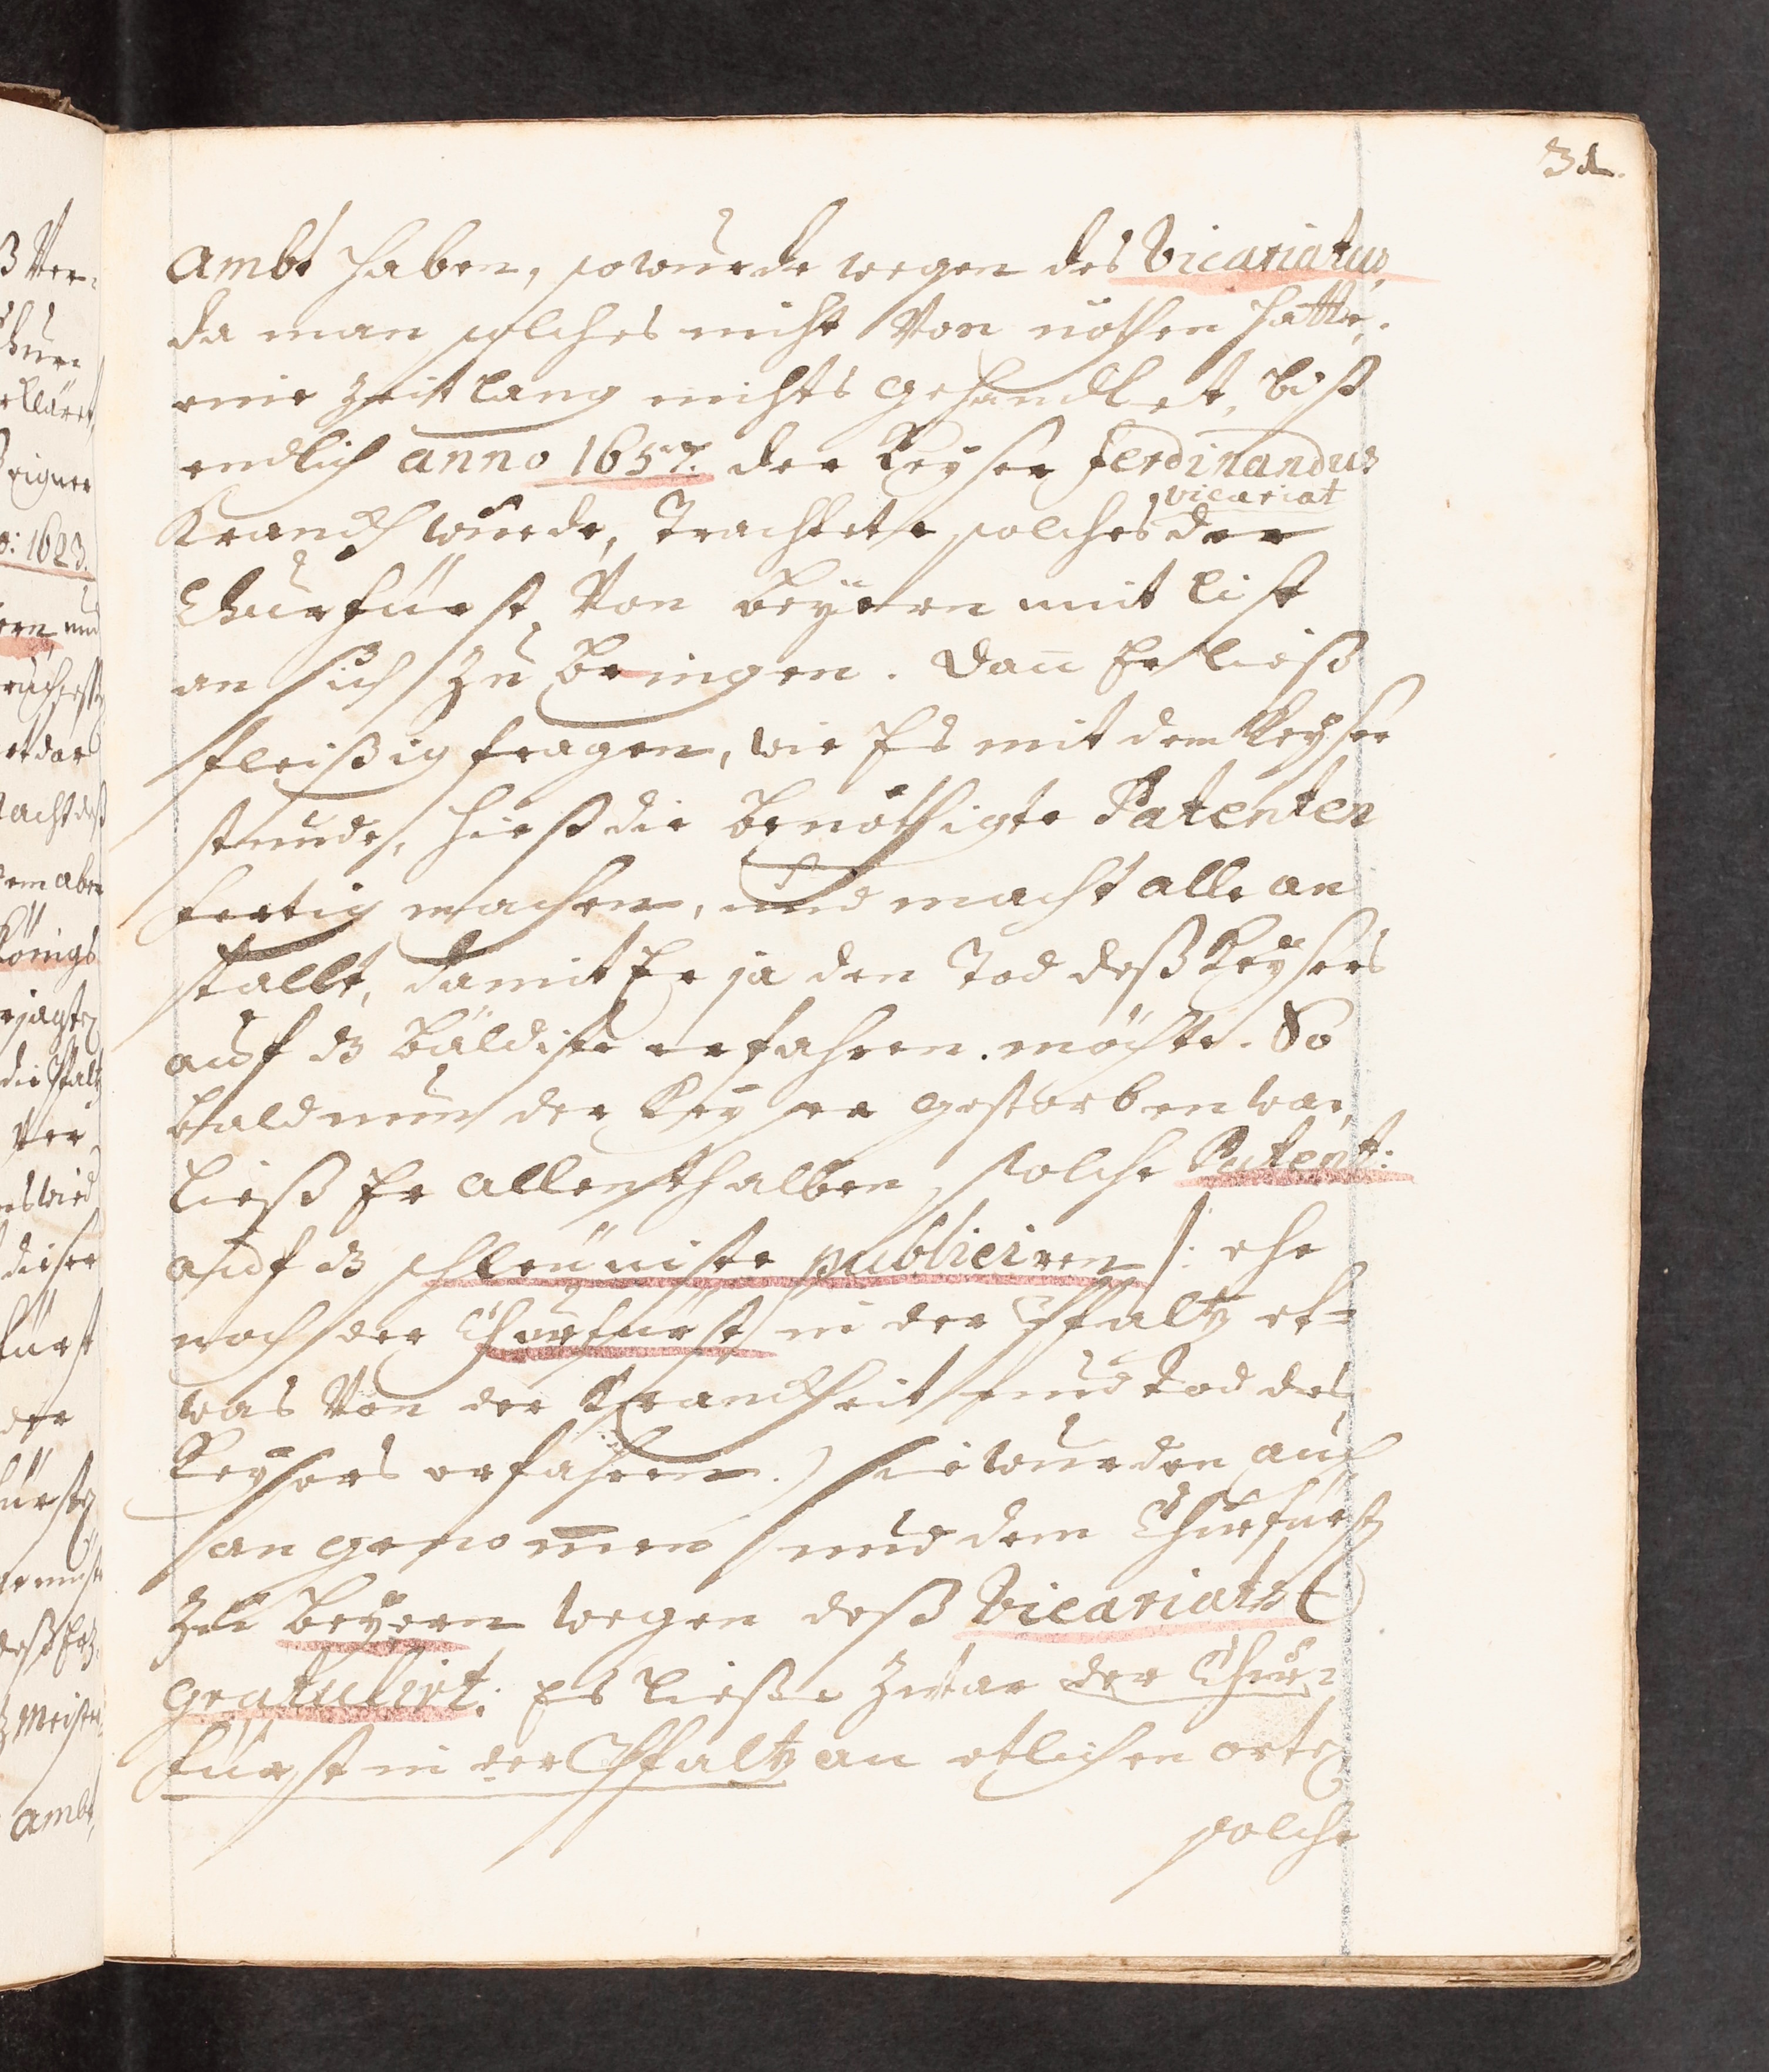 3d.
Ambt haben, so wurde wegen des Vicariatus,
da man solches nicht Von nöthen hatte,
eine Zeit lang nichts gehandlet, biß
endlich anno 1657. der Keyser Ferdinandus
vicariat
Kranckh wurde, Trachtete solches der
Churfürst Von Beyern mit list
an sich zu bringen. Dañ Er ließ
fleißig fragen, wie Es mit dem Keyser
stunde, hieß die benöthigte Patenten
fertig machen, und macht alle an
stallt, damit Er ja den Tod deß Keysers
auf dz bäldiste erfahren möchte. So
bald nun der Keyser gestorben war,
ließ Er allenthalben solche Patent:
auf dz schleuniste publiciren /: ehe
noch der Churfürst in der Pfaltz et=
was Von der Kranckheit und Tod des
Keysers erfahren.) sie wurden auch
angenom̄en und dem Churfürst
zu Beyern wegen deß Vicariats
gratulirt: Es ließe zwar der Chur=
fürst in der Pfaltz an etlichen orten
solche
ß Ver=
o: 1623.
ern, und
et dar
acht deß
dem aber
Königs
rjagte
die Pfaltz
Ver
es wird
dieser
fürst
der
Meister
Ambt,